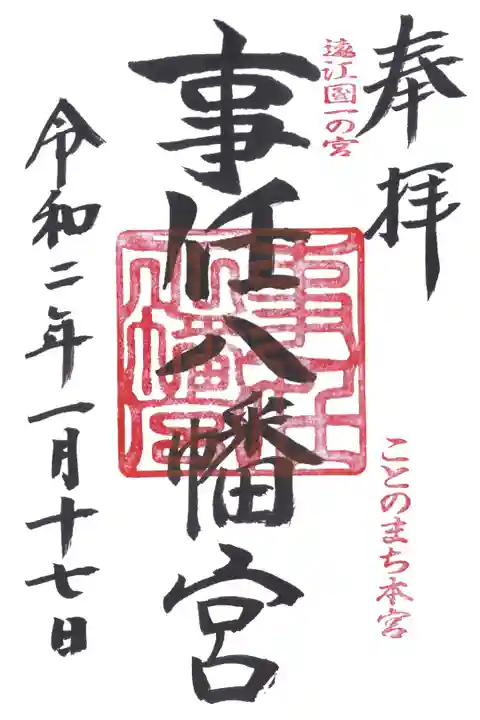 奉拝
ことのまち本宮
遠江國一の宮
事任八幡宮
事任八幡宮
令和二年一月十七日